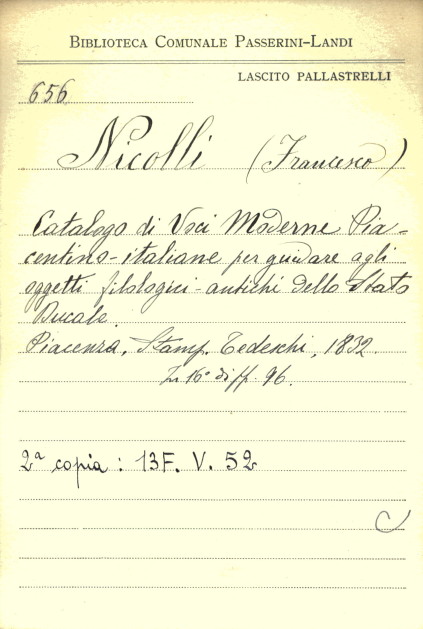 BIBLIOTECA COMUNALE PASSERINI-LANDI
LASCITO PALLASTRELLI
656
Nicolli (Francesco)
Catalogo di Voci Moderne Pia-
centino-italiane per guidare agli
oggetti filologici-antichi dello Stato
Ducale.
Piacenza, Stamp. Tedeschi, 1832.
In 16° di ff. 96.
2ª copia: 13F. V. 52
C